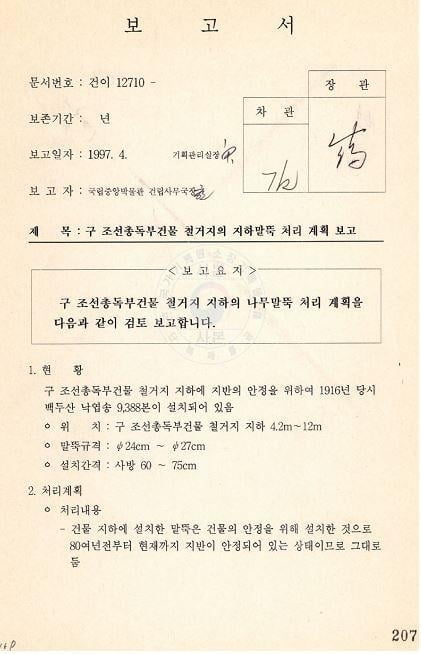 보 고 서
문서번호 : 건이 12710 -
보존기간 : 년
보고일자 : 1997. 4. 기획관리실장
보 고 자 : 국립중앙박물관 건립사무국장
장 관
차 관
제 목 : 구 조선총독부건물 철거지의 지하말뚝 처리 계획 보고
< 보 고 요 지 >
구 조선총독부건물 철거지 지하의 나무말뚝 처리 계획을
다음과 같이 검토 보고합니다.
사본
1. 현 황
구 조선총독부건물 철거지 지하에 지반의 안정을 위하여 1916년 당시
백두산 낙엽송 9,388본이 설치되어 있음
ㅇ 위 치 : 구 조선총독부건물 철거지 지하 4.2m~12m
ㅇ 말뚝규격 : φ24cm ~ φ27cm
ㅇ 설치간격 : 사방 60 ~ 75cm
2. 처리계획
ㅇ 처리내용
- 건물 지하에 설치한 말뚝은 건물의 안정을 위해 설치한 것으로
80여년전부터 현재까지 지반이 안정되어 있는 상태이므로 그대로
둠
207